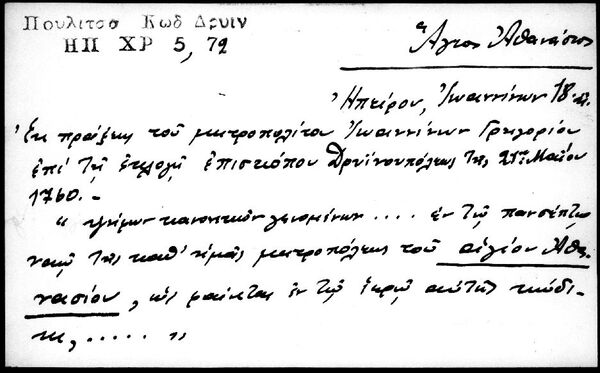 Πουλιτσα Κωδ Δρυιν
ΗΠ ΧΡ 5, 72
Ἅγιος Ἀθανάσιος
Ἠπείρου, Ἰωαννίνων 18 αἰ.
Ἐκ πράξεως τοῦ μητροπολίτου Ἰωαννίνων Γρηγορίου
ἐπί τῇ ἐκλογῇ ἐπισκόπου Δρυϊνουπόλεως τῆς 21ης Μαΐου
1760.-
“ ψήφων κανονικῶν γενομένων .... ἐν τῷ πανσέπτῳ
ναῷ τῆς καθ' ἡμᾶς μητροπόλεως τοῦ ἁγίου Ἀθα
νασίου, ὡς φαίνεται ἐν τῷ ἱερῷ αὐτῆς κώδι-
κι, ..... ”